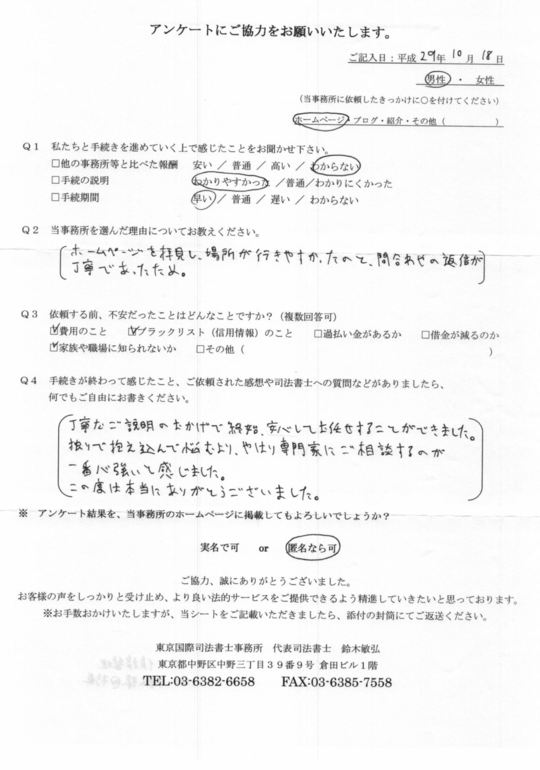 アンケートにご協力をお願いいたします。
ご記入日：平成 29年 10月 18日
男性 ・ 女性
（当事務所に依頼したきっかけに○を付けてください）
ホームページ・ブログ・紹介・その他（　　　　　）
Q1 私たちと手続きを進めていく上で感じたことをお聞かせ下さい。
□他の事務所等と比べた報酬 安い ／ 普通 ／ 高い ／ わからない
□手続の説明 わかりやすかった ／普通／わかりにくかった
□手続期間 早い ／ 普通 ／ 遅い ／ わからない
Q2 当事務所を選んだ理由についてお教えください。
ホームページを拝見し、場所が行きやすかったのと、問合わせの返信が
丁寧であったため。
Q3 依頼する前、不安だったことはどんなことですか？（複数回答可）
☑費用のこと ☑ブラックリスト（信用情報）のこと □過払い金があるか □借金が減るのか
☑家族や職場に知られないか □その他（　　　　　）
Q4 手続きが終わって感じたこと、ご依頼された感想や司法書士への質問などがありましたら、
何でもご自由にお書きください。
丁寧なご説明のおかげで終始、安心してお任せすることができました。
独りで抱え込んで悩むより、やはり専門家にご相談するのが
一番心強いと感じました。
この度は本当にありがとうございました。
※ アンケート結果を、当事務所のホームページに掲載してもよろしいでしょうか？
実名で可 or 匿名なら可
ご協力、誠にありがとうございました。
お客様の声をしっかりと受け止め、より良い法的サービスをご提供できるよう精進していきたいと思っております。
※お手数おかけいたしますが、当シートをご記載いただきましたら、添付の封筒にてご返送ください。
東京国際司法書士事務所 代表司法書士 鈴木敏弘
東京都中野区中野三丁目３９番９号 倉田ビル１階
TEL:03-6382-6658 FAX:03-6385-7558